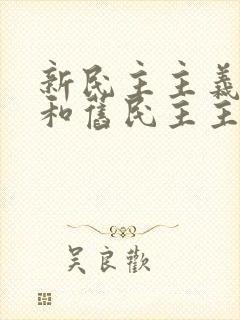 新民主主義
和舊民主主
吴良歡